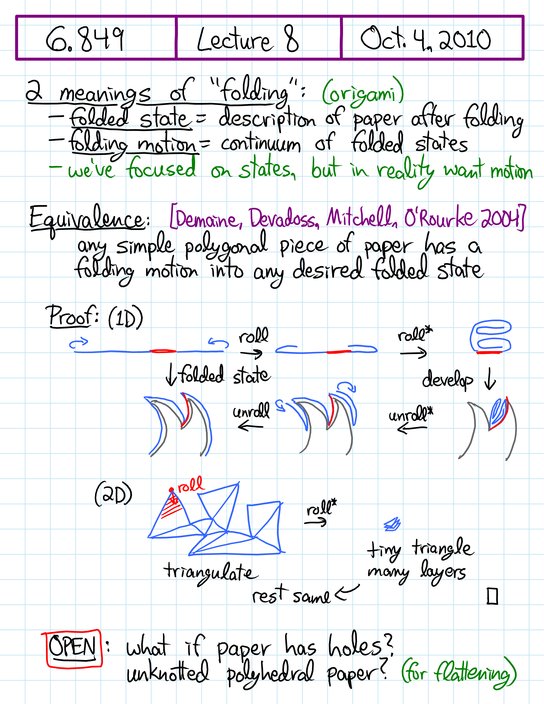 6.849 Lecture 8 Oct. 4, 2010
2 meanings of "folding": (origami)
– folded state = description of paper after folding
– folding motion = continuum of folded states
– we've focused on states, but in reality want motion
Equivalence: [Demaine, Devadoss, Mitchell, O'Rourke 2004]
any simple polygonal piece of paper has a
folding motion into any desired folded state
Proof: (1D)
roll roll*
↓folded state develop ↓
unroll unroll*
(2D) roll
roll*
triangulate
tiny triangle
many layers
rest same
OPEN: what if paper has holes?
unknotted polyhedral paper? (for flattening)